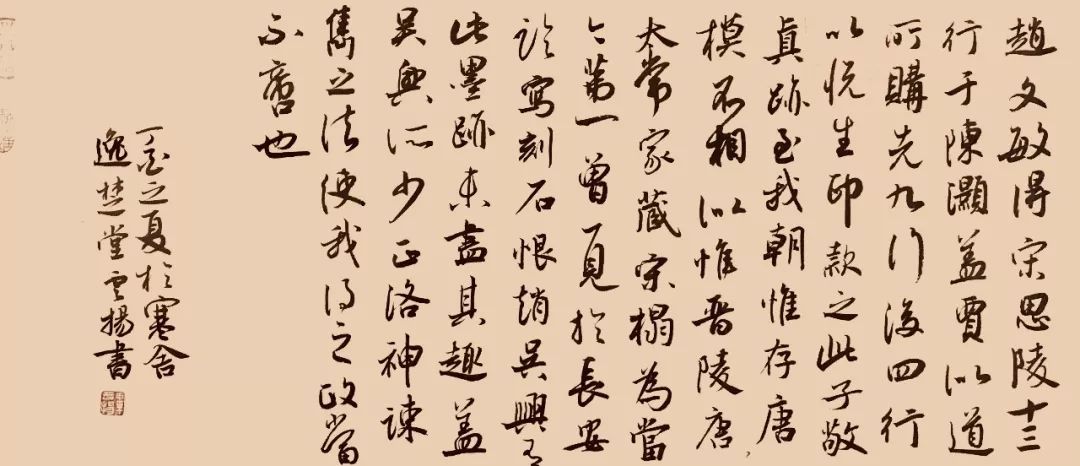 趙文敏得宋思陵十三
行于陳灝蓋賈似道
所購先九行後四行
以悅生印款之此子敬
真跡至我朝惟存唐
模不相似惟晉陵唐
太常家藏宋榻為當
今第一曾見於長安
臨寫刻石恨趙吳興有
此墨跡未盡其趣蓋
吳興所少正洛神疎
雋之法使我得之政當
不啻也
丁酉之夏於寒舍
逸楚堂雲揚書